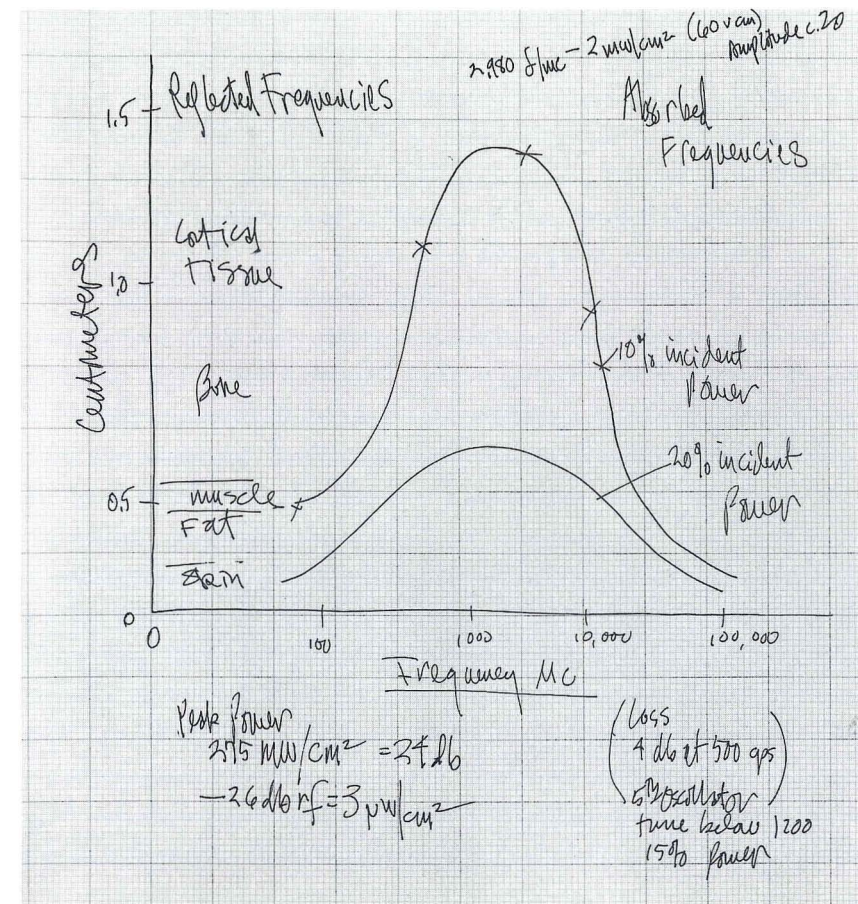 2,980 f/mc - 2 mw/cm² (60 v cm)
Amplitude c.20
Reflected Frequencies
Absorbed
Frequencies
1,5
Cortical
tissue
1,0
Centimeters
Bone
10% incident
Power
20% incident
Power
0,5
muscle
Fat
Skin
0
0
100
1000
10,000
100,000
Frequency Mc
Peak Power
275 MW/cm² = 24 db
-26 db rf = 3 μw/cm²
(Loss
4 db at 500 cps
oscillator)
tune below 1200
15% Power